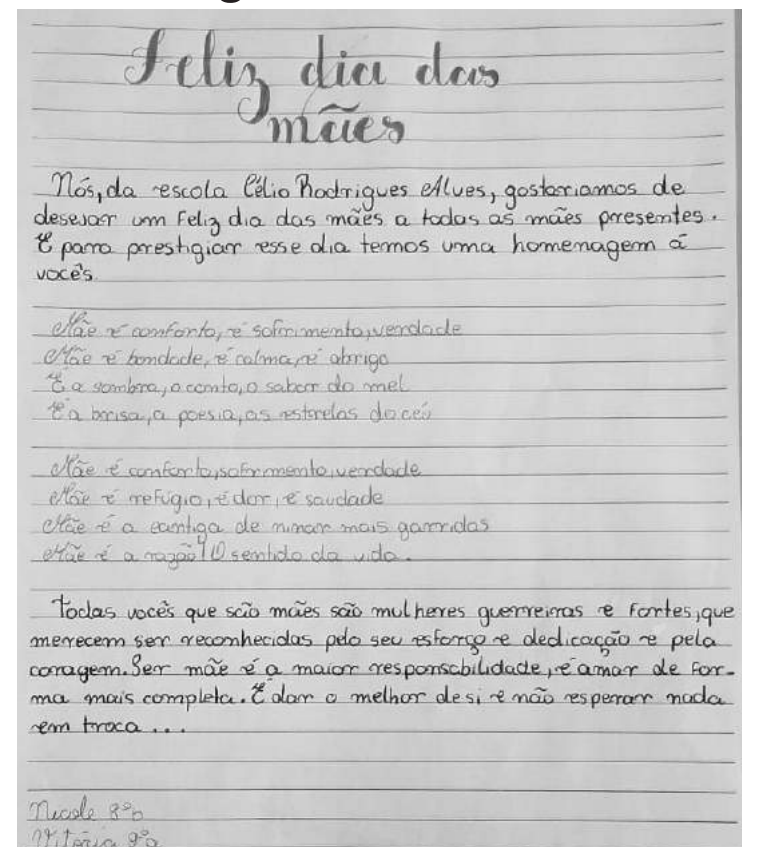 Feliz dia das
mães
Nós, da escola Célio Rodrigues Alves, gostariamos de
desejar um Feliz dia das mães a todas as mães presentes.
E para prestigiar esse dia temos uma homenagem á
vocês.
Mãe é conforto, é sofrimento, verdade
Mãe é bondade, é calma, é abrigo
É a sombra, o canto, o sabor do mel
É a brisa, a poesia, as estrelas do céu
Mãe é conforto, sofrimento, verdade
Mãe é refúgio, é dor, é saudade
Mãe é a cantiga de ninar mais garridas
Mãe é a razão! O sentido da vida.
Todas vocês que são mães são mulheres guerreiras e fortes, que
merecem ser reconhecidas pelo seu esforço e dedicação e pela
coragem. Ser mãe é a maior responsabilidade, é amar de for-
ma mais completa. É dar o melhor de si e não esperar nada
em troca ...
Nicole 8ºb
Vitória 9ºa